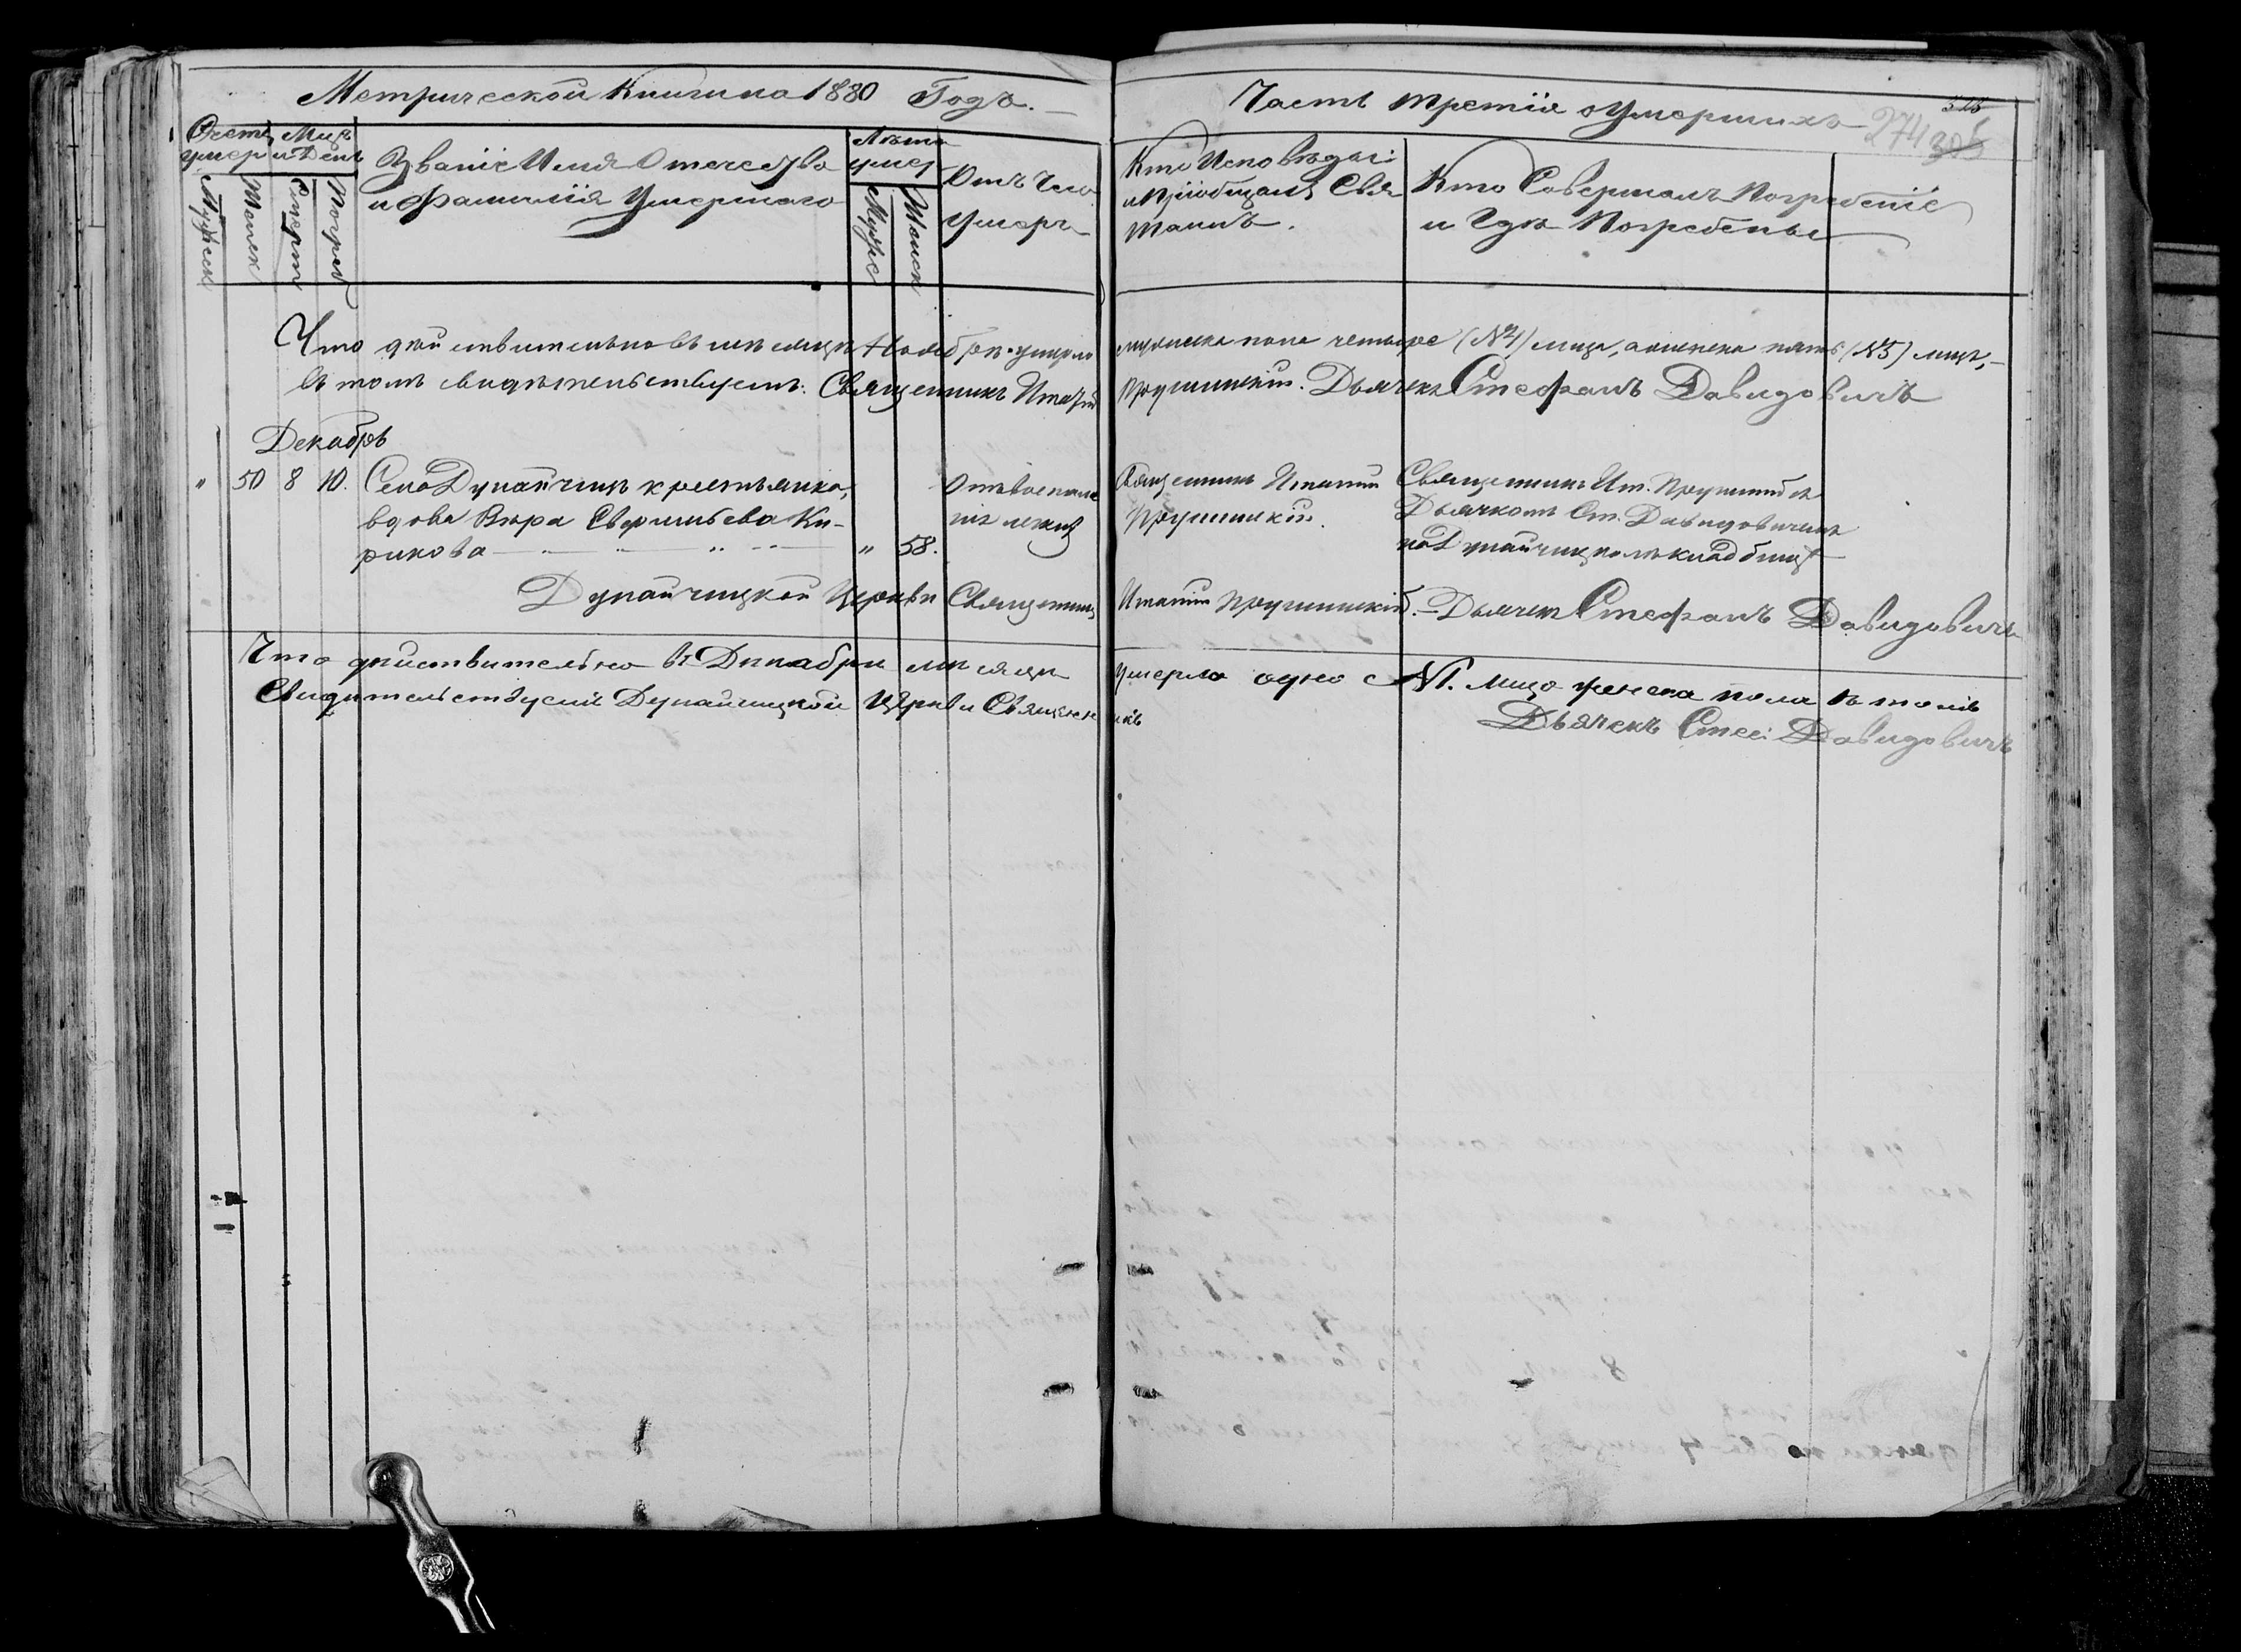 Метрической Книги на 1880 Годъ.
Часть третія о Умершихъ
274
Счетъ умер
Мцъ и День
Званіе Имя Отчество
и Фамилія Умершаго
Лѣта умер
Отъ Чего
Умеръ
Кто Исповѣдыв:
и пріобщалъ Свя
таинъ.
Кто Совершалъ Погребеніе
и Гдѣ Погребены
Мужеск
Женск
Смерт
Погреб
Мужес
Женск
Что дѣйствительно въ мѣсяцѣ Ноябрѣ умерло мужеска пола четыре (№4) лица, а женска пять (№5) лицъ,
въ томъ свидѣтельствуемъ: Священникъ Игнатій Прушинскій. Дьячекъ Стефанъ Давидовичъ
Декабрь
" 50 8 10. Села Дунайчицъ крестьянка,
вдова Вѣра Савельева Ки-
рикова " 58.
Отъ воспале
нія легкихъ
Священникъ Игнатій
Прушинскій.
Священникъ Иг. Прушинскій съ
Дьячкомъ Ст. Давидовичемъ
на Дунайчицкомъ кладбищѣ
Дунайчицкой Церкви Священникъ Игнатій Прушинскій. Дьячекъ Стефанъ Давидовичъ
Что дѣйствительно въ Декабри мѣсяцѣ умерло одно №1. лицо женска пола въ томъ
Свидѣтельствуемъ Дунайчицкой Церкви Священникъ
Дьячекъ Стеѳ: Давидовичъ